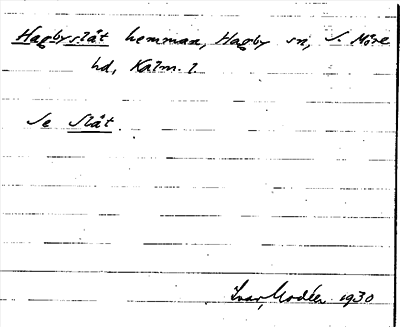 Hagbyslåt hemman, Hagby sn, S. Möre
hd, Kalm. l.
Se Slåt.
Ivar Modéer 1930